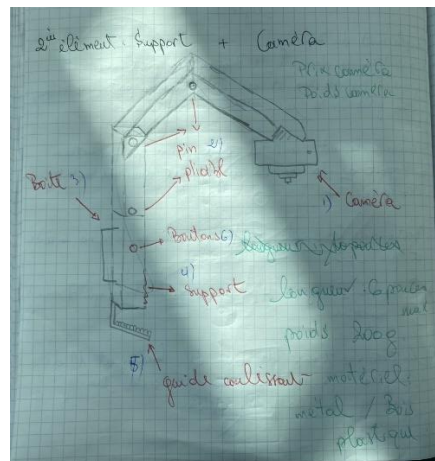 2ᵘⁱ élément. Support + Caméra
Prix caméra
poids caméra
pin 2)
pliabl
Boite 3)
1) Caméra
Boutons 6)
4) Support
longueur:
max
poids 200g
5) guide coulissant - matériel:
métal / Bois
plastique